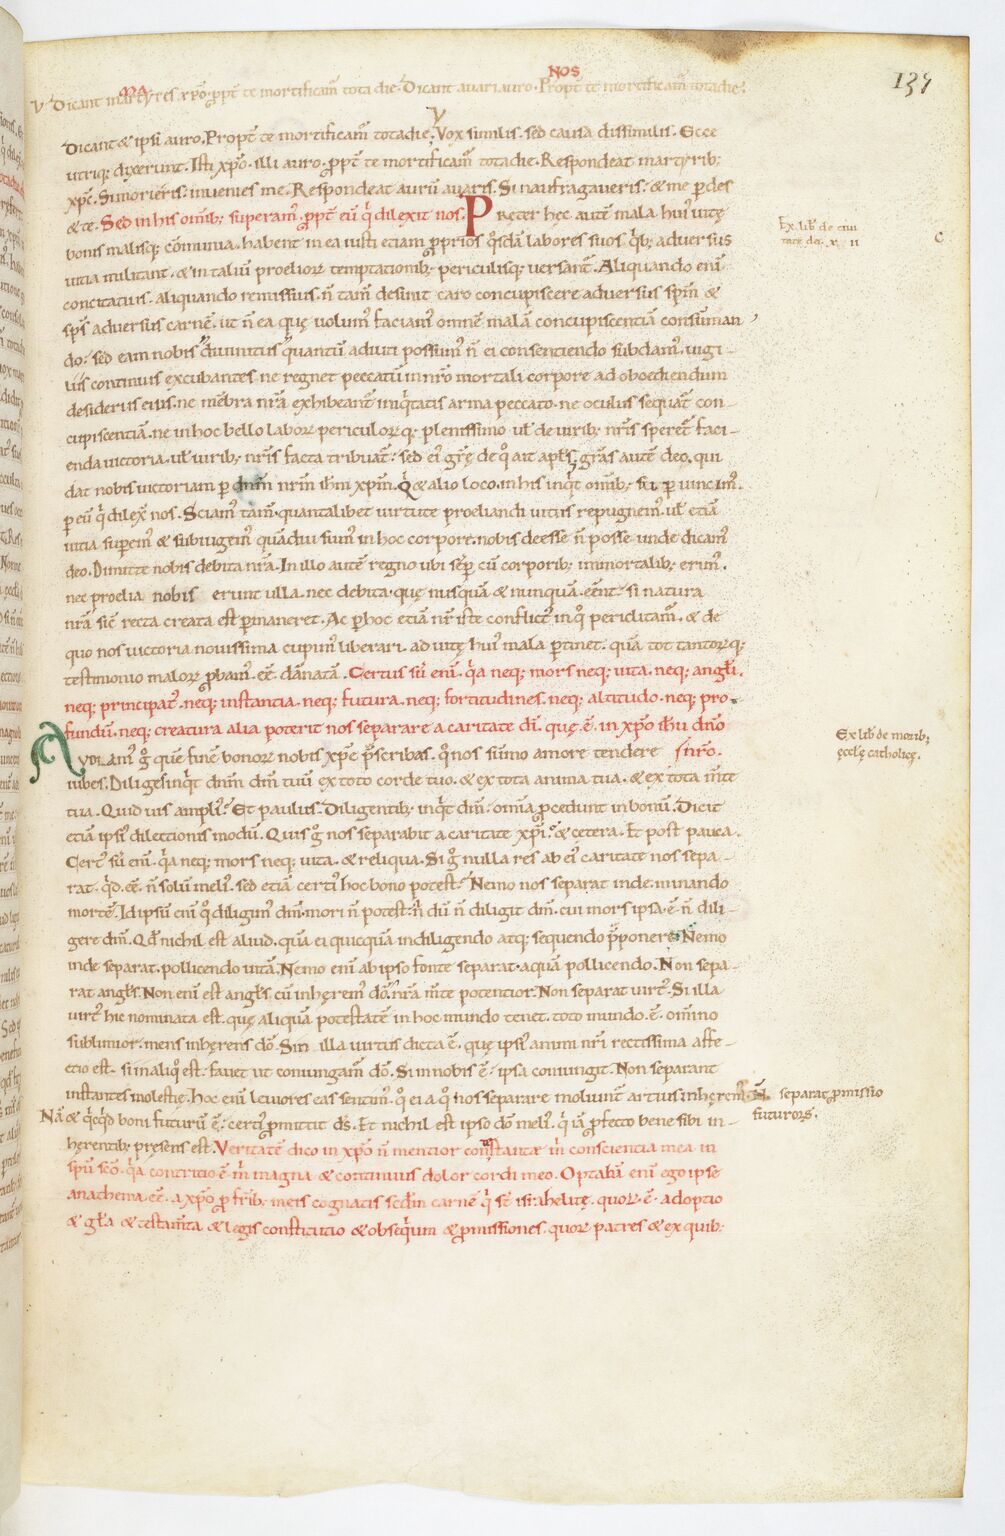 NOS
137
V Dicant martyres xpō. ppt te mortificam̄ tota die. Dicant avari auro. Propt te mortificam̄ tota die.
Dicant & ipsi auro. Propt te mortificam̄ tota die. Vox similis. sed causa dissimilis. Ecce
utriq; dixerunt. Isti xpō. illi auro. ppt te mortificam̄ tota die. Respondeat martyrib;
xpc̄. Si morieris. invenies me. Respondeat aurū avaris. Si naufragaveris. & me pdes
& te. Sed in his omīb; superam'. ppt eū q dilexit nos. Preter hęc autē mala hui' vitę
Ex lib' de ciui
tate dei
bonis malisq; cōmunia. habent in ea iusti etiam pprios qsdā labores suos qb; adversus
uitia militant. & in taliū proelior temptationib; periculisq; versant. Aliquando enī
concitatius. aliquando remissius. n̄ tam̄ desinit caro concupiscere adversus spm̄ &
sps̄ adversus carnē. ut n̄ ea quę volum' faciam' omnē malā concupiscentiā consūman
do. sed eam nobis divinitus quantū adiuti possum' n̄ ei consentiendo subdam'. uigi-
liis continuis excubantes ne regnet peccatū in nrō mortali corpore ad oboediendum
desideriis eius. ne mēbra nrā exhibeant iniqtatis arma peccato. ne oculus sequat con-
cupiscentiā. ne in hoc bello labor periculorq; plenissimo ul de virib; nrīs speret faci-
enda victoria. ul virib; nrīs facta tribuat. sed ei' grę de q ait apls. gras autē deo. qui
dat nobis victoriam p dnm̄ nrm̄ ihm̄ xpm̄. Q & alio loco. in his inqt omīb; sup vincim'.
p eū q dilex nos. Sciam' tam̄. quantalibet virtute proeliandi vitiis repugnem'. ul etiā
vitia superem' & subiugem' quādiu sum' in hoc corpore. nobis deesse n̄ posse unde dicam'
deo. Dimitte nobis debita nrā. In illo autē regno ubi sēp cū corporib; inmortalib; erim'.
nec proelia nobis erunt ulla. nec debita. quę nusquā & nunquā eent. si natura
nrā sic recta creata est pmaneret. Ac phoc etiā nr iste conflict' in q periclitam'. & de
quo nos victoria novissima cupim' liberari. ad vitę hui' mala ptinet. quā tot tantorq;
testimonio malor pbam' eē dānatā. Certus sū enī. qa neq; mors neq; vita. neq; angli.
neq; principat'. neq; instantia. neq; futura. neq; fortitudines. neq; altitudo. neq; pro-
fundū. neq; creatura alia poterit nos separare a caritate dī. quę ē. in xpō ihu dnō
nrō.
Audiam' g quē finē bonor nobis xpc̄ pscribas. q nos sūmo amore tendere
iubes. Diliges inqt dnm̄ dm̄ tuū ex toto corde tuo. & ex tota anima tua. & ex tota mte
Ex lib' de morib;
ęcclę catholicę.
tua. Quid vis ampli'? Et paulus. Diligentib; inqt dm̄. omīa pcedunt in bonū. Dicit
etiā ipsi' dilectionis modū. Quis g nos separabit a caritate xpī? & cetera. Et post pauca.
Cert' sū enī. qa neq; mors neq; vita. & reliqua. Si g nulla res ab ei' caritate nos sepa-
rat. qd eē. n̄ solū meli'. sed etiā certi' hoc bono potest? Nemo nos separat inde. minando
mortē. Id ipsū enī q diligim' dm̄. mori n̄ potest. n̄ dū n̄ diligit dm̄. cui mors ipsa. ē n̄ dili-
gere dm̄. Qd nichil est aliud. quā ei quicquā in diligendo atq; sequendo pponere. Nemo
inde separat. pollicendo vitā. Nemo enī ab ipso fonte separat. aquā pollicendo. Non sepa-
rat angls. Non enī est angls. cū inherem' dō. nrā mte potentior. Non separat virt'. Si illa
virt' hic nominata est. quę aliquā potestatē in hoc mundo tenet. toto mundo. ē. omīno
sublimior. mens inhęrens dō. Sin illa virtus dicta ē. quę ipsi' animi nrī rectissima affe-
ctio est. si in aliq est. favet ut coniungam̄ dō. Si in nobis ē. ipsa coniungit. Non separant
instantes molestię. hoc enī leviores eas sentim'. q ei a q nos separare moliunt artius inhęrem'. N̄ separat pmissio
futuroȝ.
Nā & qcqd boni futurū ē. certi' pmittit ds̄. Et nichil est ipso dō meli'. q iā pfecto bene sibi in-
hęrentib; pręsens est. Veritatē dico in xpō n̄ mentior m̄ conscientia mea in
spū scō. qa contritio ē m̄ magna & continuus dolor cordi meo. Optabā enī ego ipse
anathema eē. a xpō p frib; meis cognatis scdm carnē q st israhelitę. quor ē. adoptio
& gla & testam̄ta & legis constitutio & obsequium & pmissiones. quor patres & ex quib;